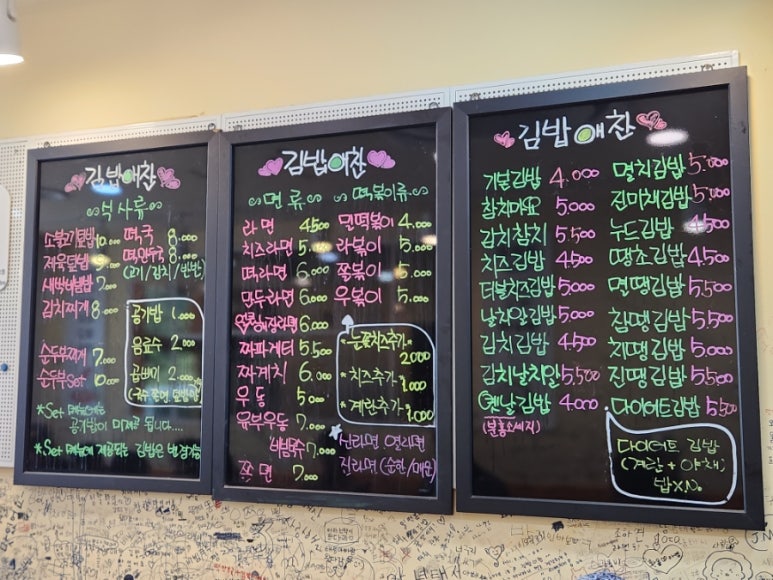 김밥애찬
식사류
소불고기덮밥 10.000
제육덮밥 9.000
새싹비빔밥 7.000
김치찌개 8.000
순두부찌개 7.000
순두부set 10.000
떡국 8.000
떡만두국 8.000
(고기/김치/반반)
공기밥 1.000
음료수 2.000
곱빼기 2.000
*Set 메뉴에는
공기밥이 미제공 됩니다....
*Set 메뉴에 제공되는 김밥은 변경가능
김밥애찬
면류
라면 4.500
치즈라면 5.000
떡라면 6.000
만두라면 6.000
해장라면 6.000
짜파게티 5.500
짜계치 6.000
우동 5.000
유부우동 7.000
비빔국수 7.000
쫄면 7.000
떡볶이류
밀떡볶이 4.000
라볶이 5.000
쫄볶이 5.000
우볶이 5.000
*눈꽃치즈추가*
2.000
*치즈추가*
*계란추가*
1.000
신라면 열라면
진라면 (순한/매운)
김밥애찬
기본김밥 4.000
참치마요 5.000
김치참치 5.500
치즈김밥 4.500
더블치즈김밥 5.000
날치알김밥 5.000
김치김밥 4.500
김치날치알 5.500
옛날김밥 4.000
(분홍소세지)
멸치김밥 5.000
진미채김밥 5.000
누드김밥 4.500
땡초김밥 4.500
면땡김밥 5.500
참땡김밥 5.500
치땡김밥 5.500
진땡김밥 5.500
다이어트김밥 5.500
다이어트 김밥
(계란 + 야채)
밥 X NO.